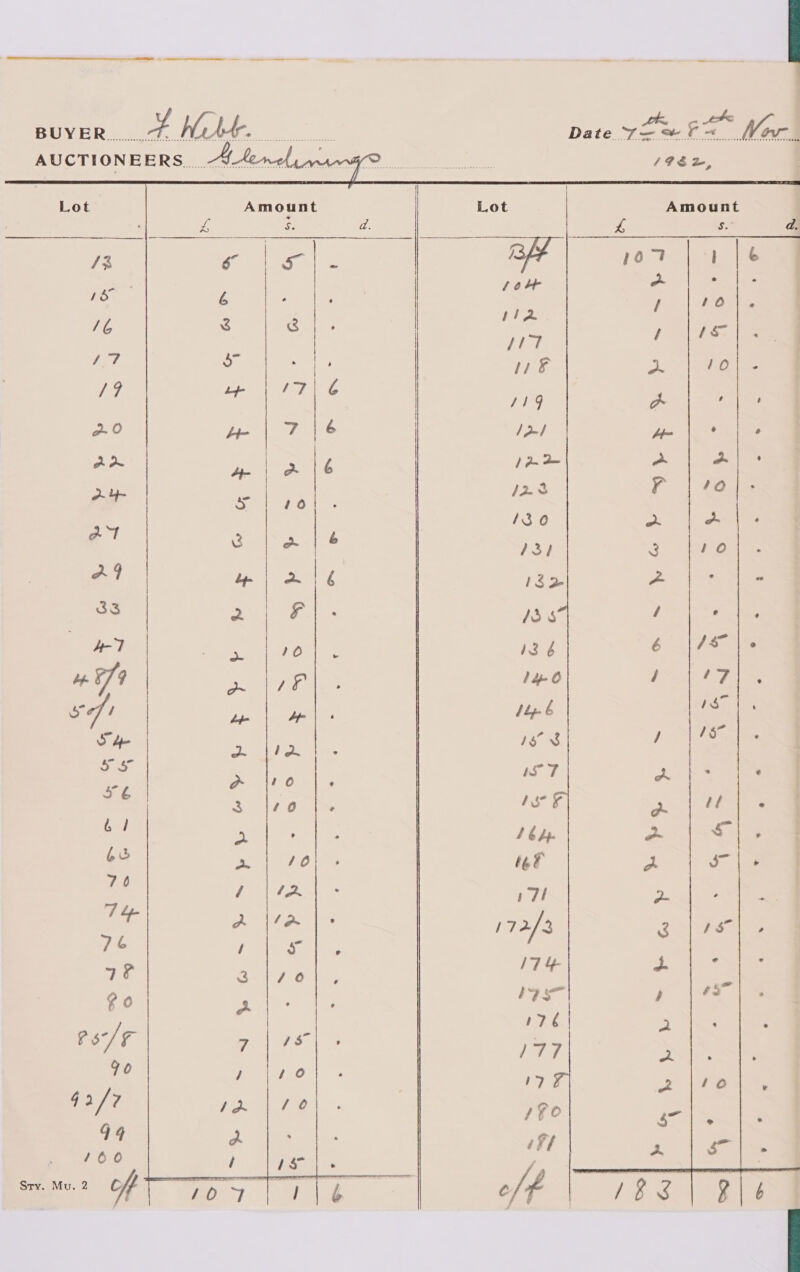 BUYER F. Webb.
Date 7th & 8th Nov
AUCTIONEERS Glendinings
1962,
Lot Amount Lot Amount
£ s. d. £ s. d.
13 5 5 -
15 6 . .
16 3 3 .
17 5 . .
19 4 17 6
20 4 7 6
22 4 2 6
24 5 10 .
27 3 2 6
29 4 2 6
33 2 8 .
47 2 10 .
48/9 2 18 .
50/1 4 4 .
54 2 12 .
55 2 10 .
56 3 10 .
61 2 . .
63 2 10 .
70 1 12 .
74 2 12 .
76 1 5 .
78 3 10 .
80 2 . .
85/8 7 15 .
90 1 10 .
92/7 12 10 .
99 2 . .
100 1 15 .
Sty. Mu. 2 c/f 107 1 6
B/f 107 1 6
104 2 . .
112 1 10 .
117 1 15 .
118 2 10 -
119 2 . .
121 4 . .
122 2 2 .
123 8 10 .
130 2 2 .
131 3 10 .
132 2 . -
135 1 . .
136 6 15 .
140 1 17 .
146 15 .
153 1 15 .
157 2 . .
158 2 11 .
164 2 5 .
168 2 5 .
171 2 . .
172/3 3 15 .
174 2 . .
175 1 15 .
176 2 . .
177 2 . .
178 2 10 .
180 5 . .
181 2 5 .
c/f 183 8 6